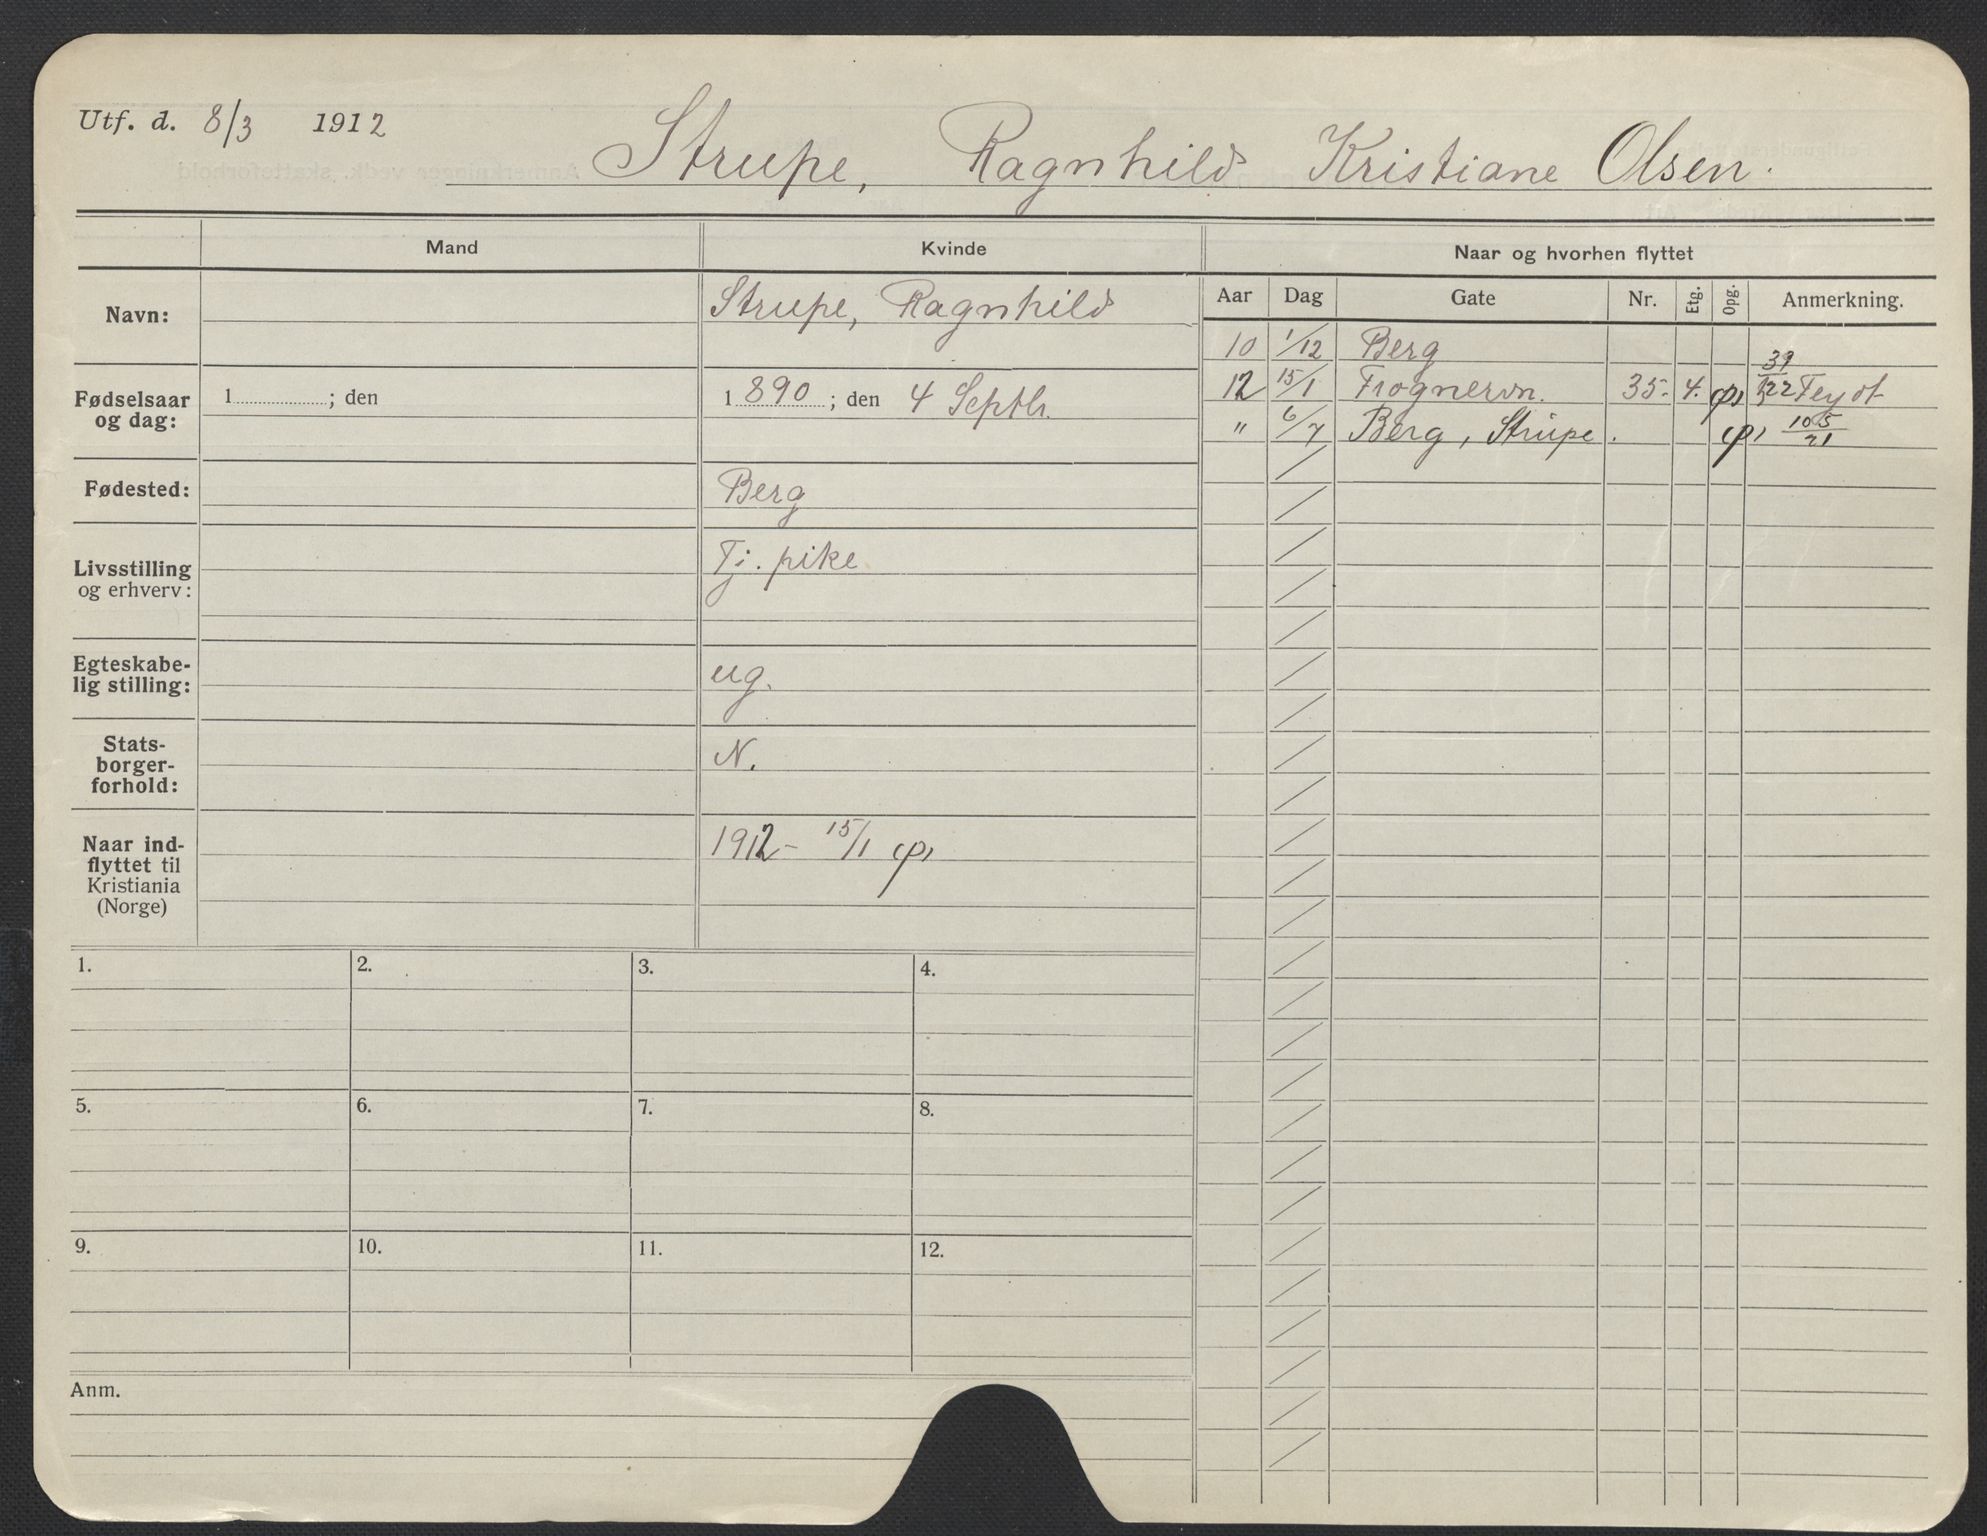 Utf. d. 8/3 1912
Strupe, Ragnhild Kristiane Olsen.
Mand Kvinde Naar og hvorhen flyttet
Aar Dag Gate Nr. Etg. Opg. Anmerkning.
Navn: Strupe, Ragnhild
10 1/12 Berg
Fødselsaar og dag: 1 ; den 1890 ; den 4 Septbr.
12 15/1 Frognervn. 35. 4. Feydt
" 6/7 Berg, Strupe. 105/21
Fødested: Berg
Livsstilling
og erhverv: Tj. pike
Egteskabe-
lig stilling: ug.
Stats-
borger-
forhold: N.
Naar ind-
flyttet til
Kristiania
(Norge)
1912 - 15/1
1. 2. 3. 4.
5. 6. 7. 8.
9. 10. 11. 12.
Anm.